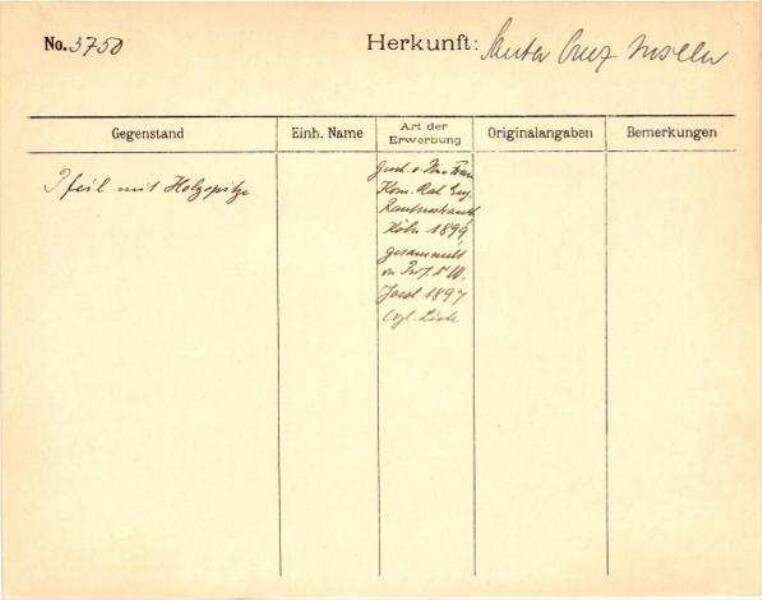 No. 3750 Herkunft: Santa Cruz Inseln
Gegenstand
Einh. Name
Art der
Erwerbung
Originalangaben
Bemerkungen
Pfeil mit Holzspitze
Gesch. v. Frau
Kom. Rat Eug.
Rautenstrauch
Köln 1899,
gesammelt
v. Prof. Dr W.
Joest 1897
(vgl. Liste